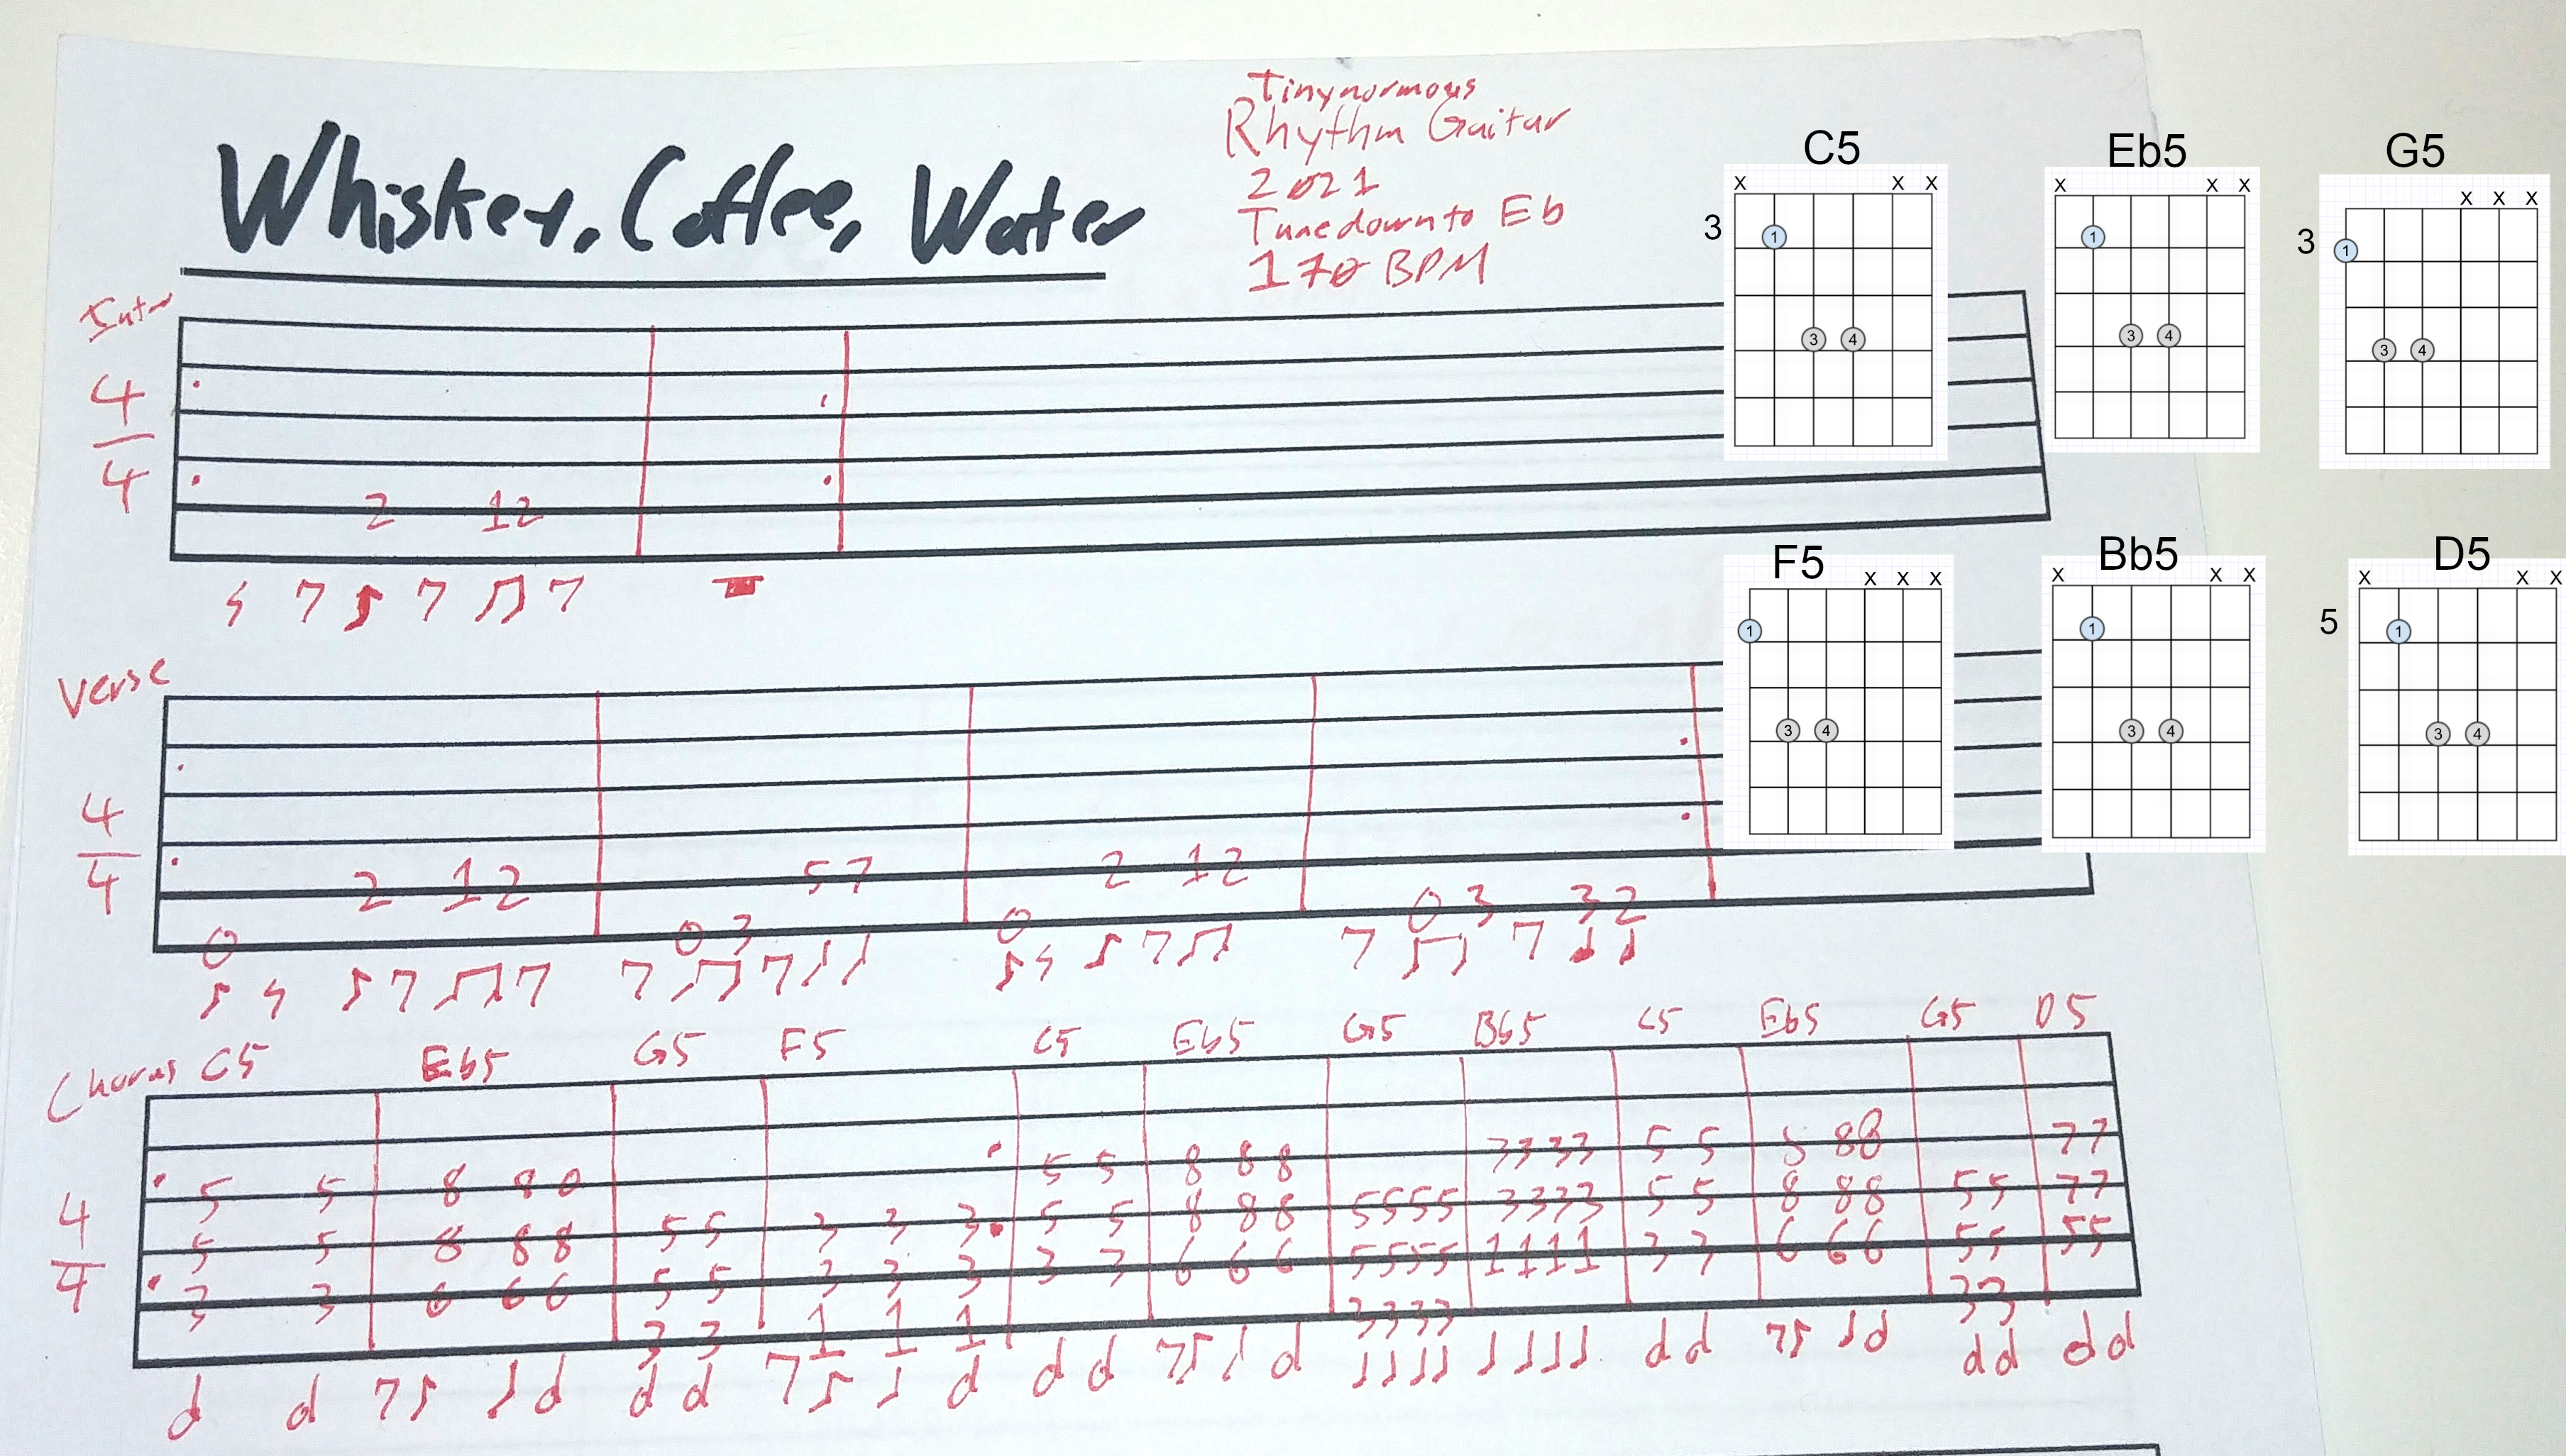 Whiskey, Coffee, Water
Tinynormous
Rhythm Guitar
2021
Tune down to Eb
170 BPM
C5
x x x
3
1
3 4
Eb5
x x x
1
3 4
G5
x x x
3
1
3 4
F5
x x x
1
3 4
Bb5
x x x
1
3 4
D5
x x x
5
1
3 4
Intr
4
4
2 12
Verse
4
4
2 12 57 2 12
0 03 0 03 32
Chorus C5 Eb5 G5 F5 C5 Eb5 G5 Bb5 C5 Eb5 G5 D5
4
4
5 5 8 8 5 5 8 8 8 3333 5 5 88 77
5 5 8 8 8 5 5 3 3 3 5 5 8 8 8 5555 3333 5 5 8 88 55 77
3 3 6 66 5 5 3 3 3 3 3 6 6 6 5555 1111 3 3 6 66 55 55
3 3 1 1 1 3333 33